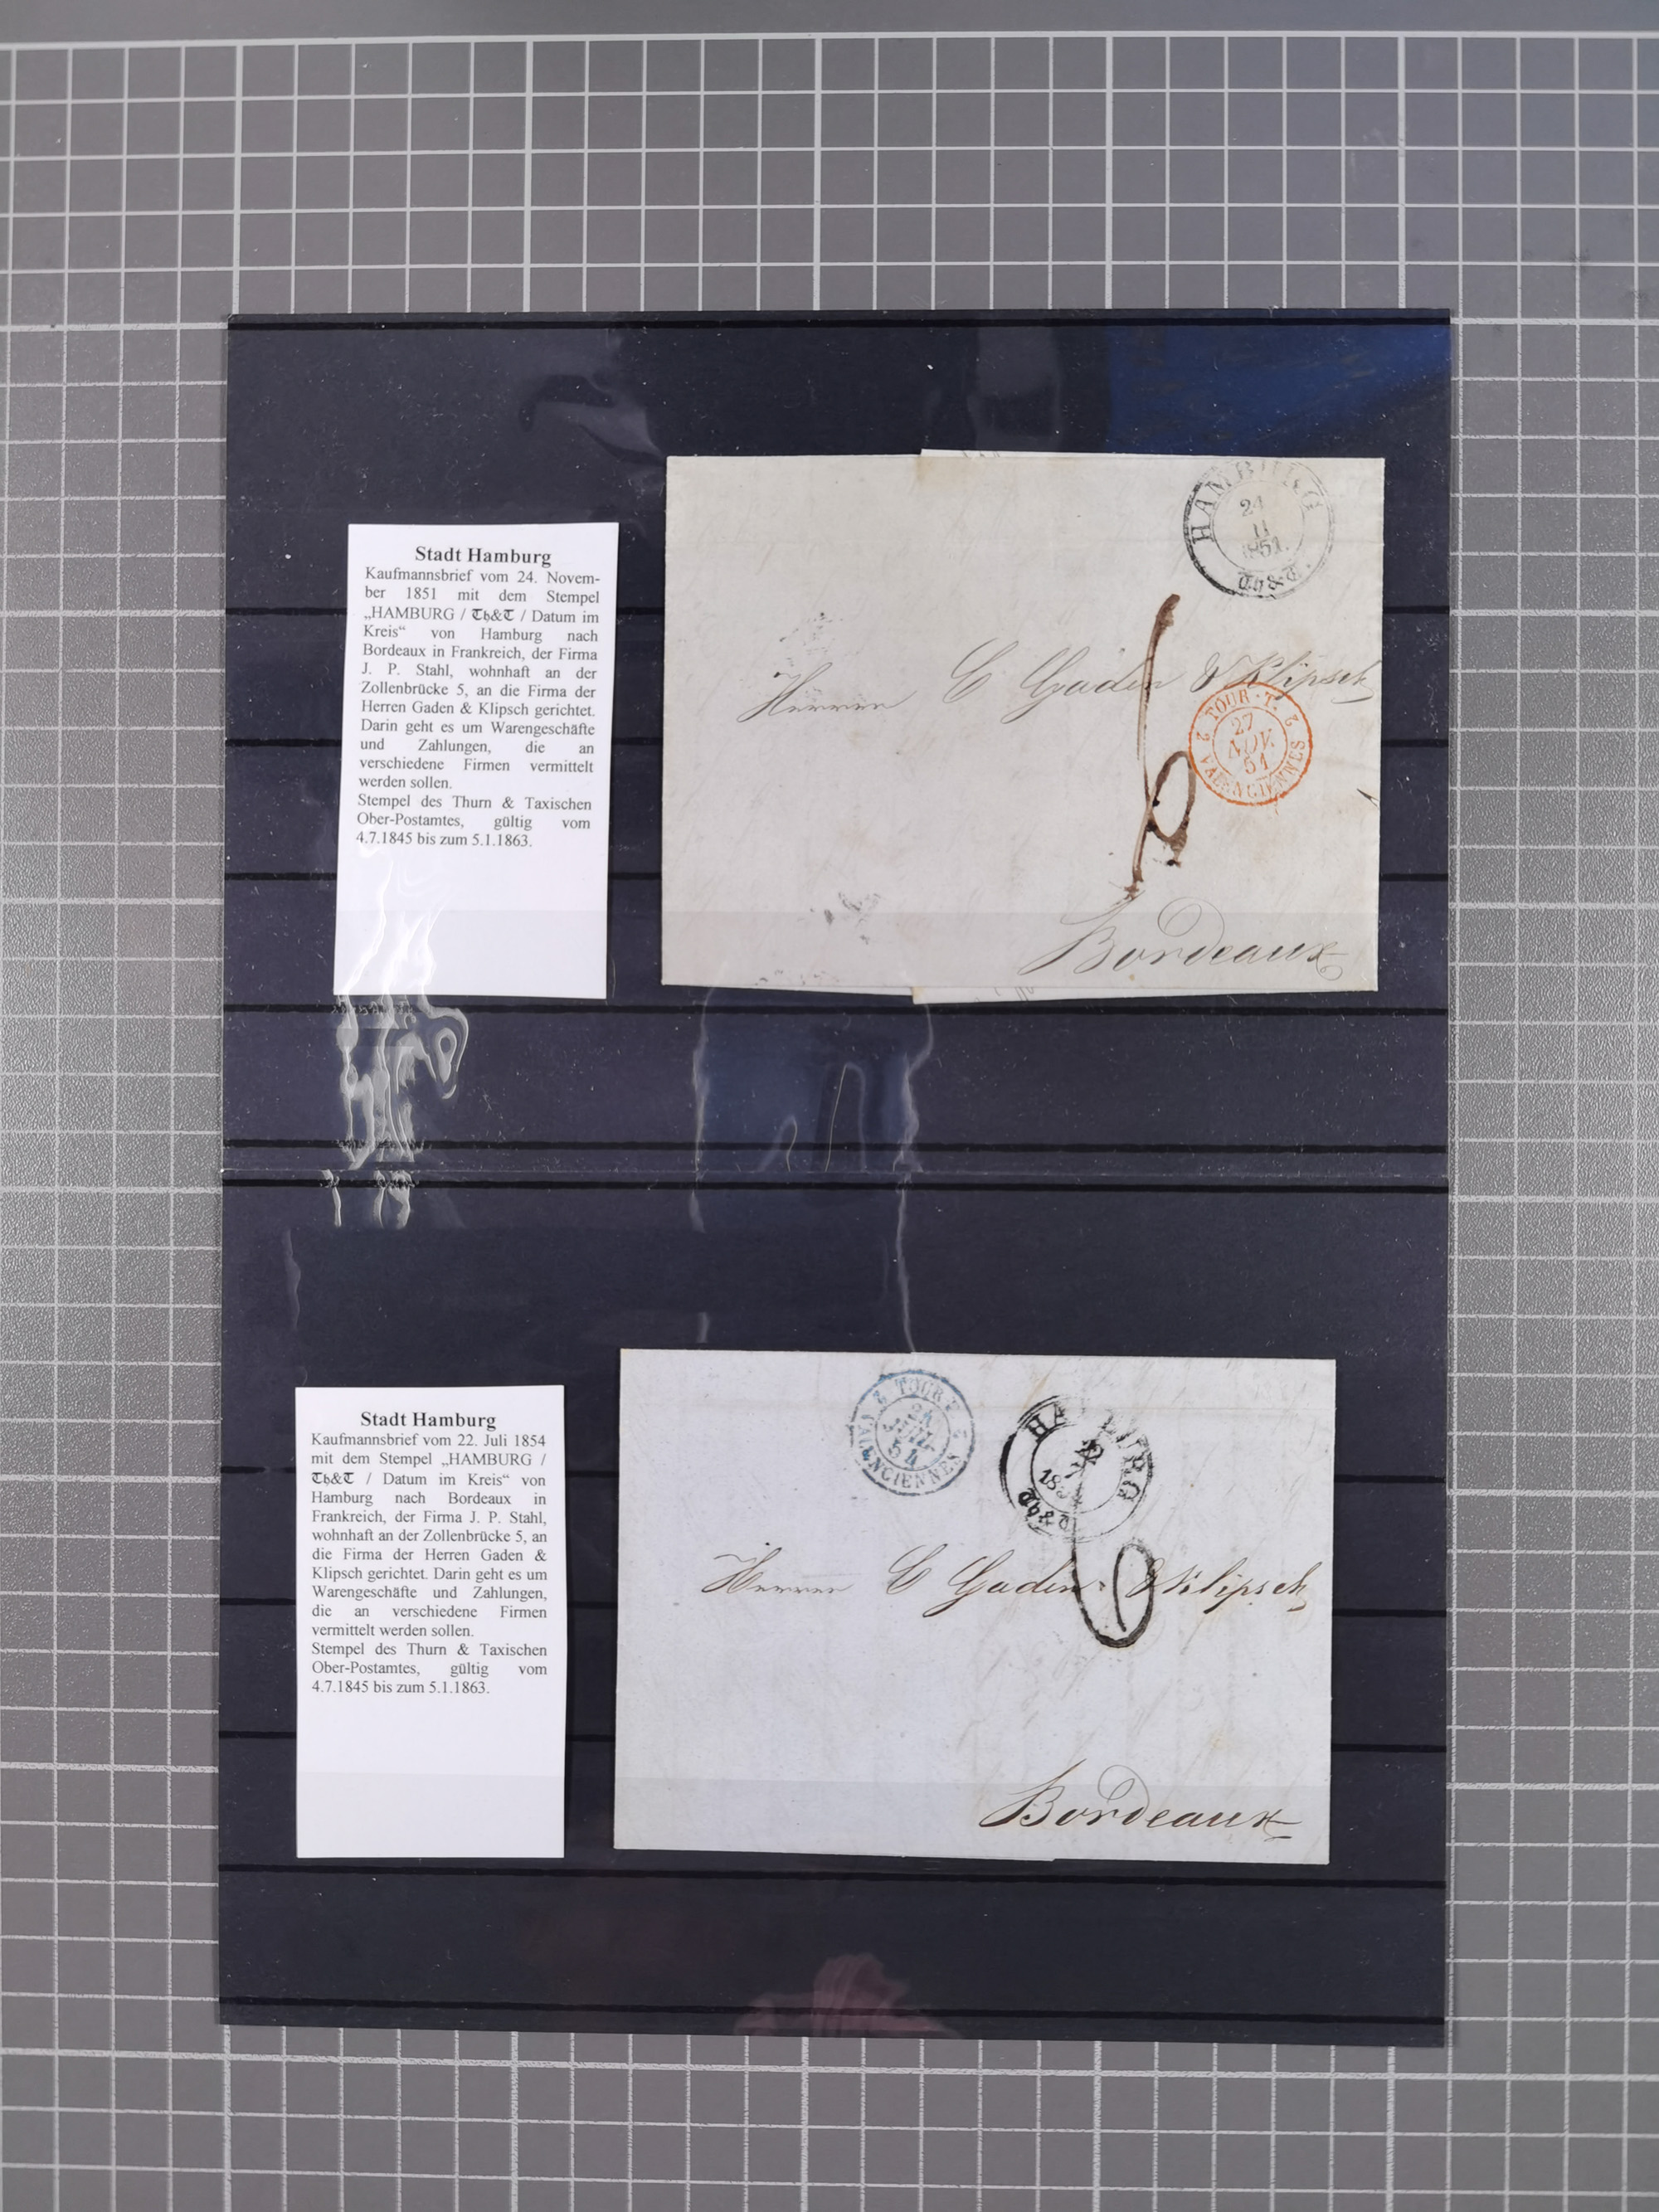 Stadt Hamburg
Kaufmannsbrief vom 24. Novem-
ber 1851 mit dem Stempel
„HAMBURG / Th&T / Datum im
Kreis“ von Hamburg nach
Bordeaux in Frankreich, der Firma
J. P. Stahl, wohnhaft an der
Zollenbrücke 5, an die Firma der
Herren Gaden & Klipsch gerichtet.
Darin geht es um Warengeschäfte
und Zahlungen, die an
verschiedene Firmen vermittelt
werden sollen.
Stempel des Thurn & Taxischen
Ober-Postamtes, gültig vom
4.7.1845 bis zum 5.1.1863.
HAMBURG
24
11
1851.
Th&T.
Herren C Gaden & Klipsch
2 TOUR·T. 2
27
NOV.
51
VALENCIENNES
Bordeaux
Stadt Hamburg
Kaufmannsbrief vom 22. Juli 1854
mit dem Stempel „HAMBURG /
Th&T / Datum im Kreis“ von
Hamburg nach Bordeaux in
Frankreich, der Firma J. P. Stahl,
wohnhaft an der Zollenbrücke 5, an
die Firma der Herren Gaden &
Klipsch gerichtet. Darin geht es um
Warengeschäfte und Zahlungen,
die an verschiedene Firmen
vermittelt werden sollen.
Stempel des Thurn & Taxischen
Ober-Postamtes, gültig vom
4.7.1845 bis zum 5.1.1863.
2 TOUR T 2
JUIL
54
VALENCIENNES
HAMBURG
22
Th&T
Herren C Gaden & Klipsch
6
Bordeaux